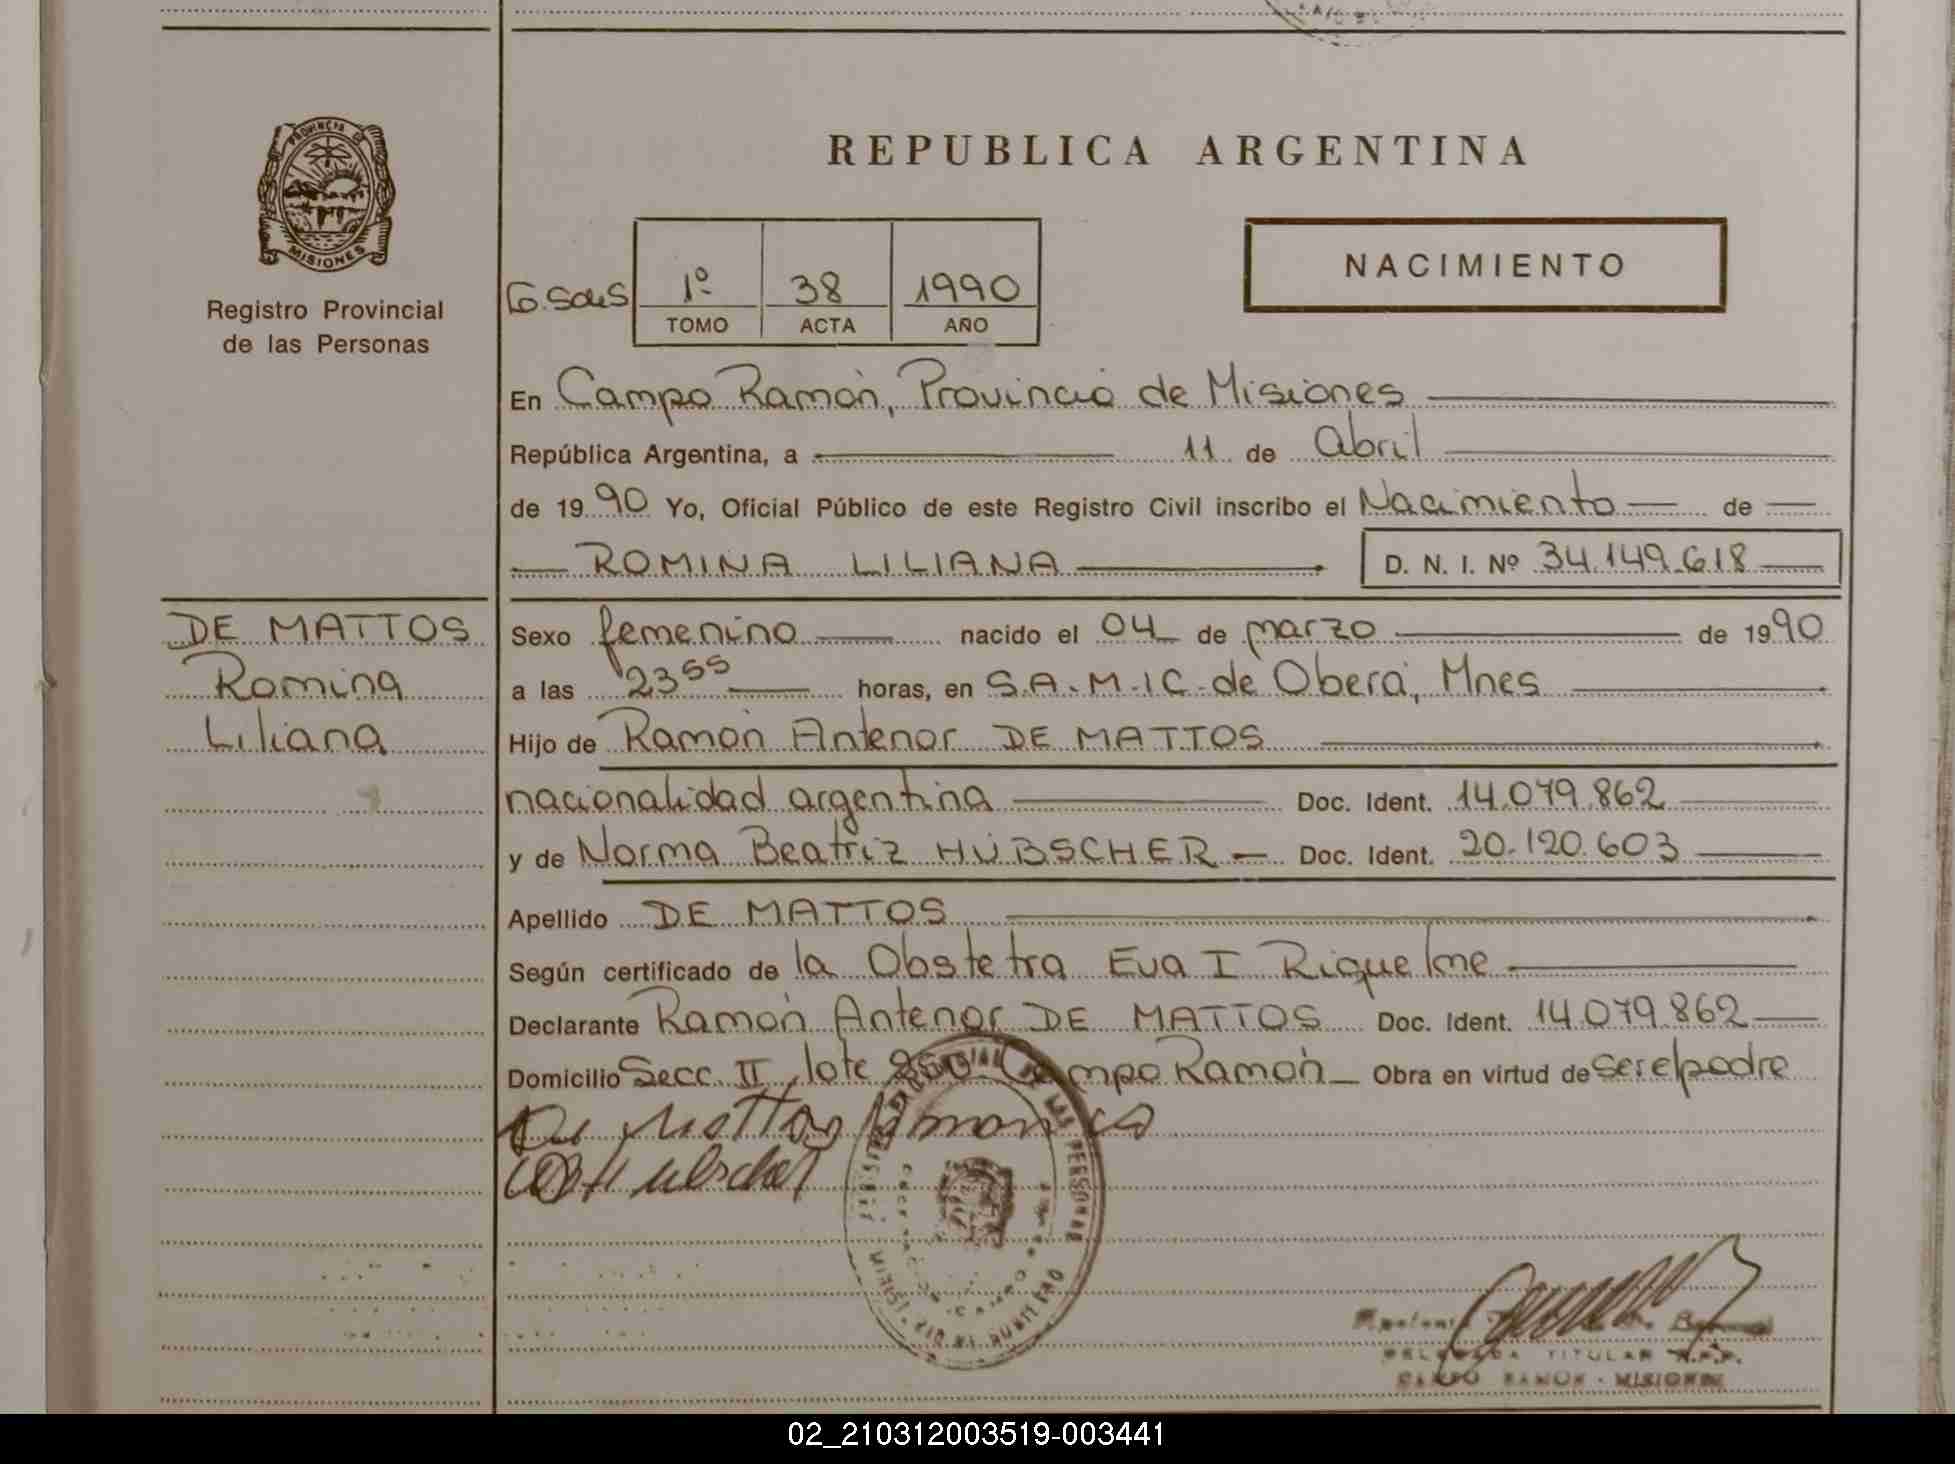 PROVINCIA DE
MISIONES
Registro Provincial
de las Personas
REPUBLICA ARGENTINA
NACIMIENTO
1º 38 1990
TOMO ACTA AÑO
En Campo Ramón, Provincia de Misiones
República Argentina, a 11 de Abril
de 1990 Yo, Oficial Público de este Registro Civil inscribo el Nacimiento de
ROMINA LILIANA D. N. I. Nº 34.149.618
DE MATTOS
Romina
Liliana
Sexo femenino nacido el 04 de marzo de 1990
a las 23⁵⁵ horas, en S.A.M.I.C. de Oberá, Mnes
Hijo de Ramón Antenor DE MATTOS
nacionalidad argentina Doc. Ident. 14.079.862
y de Norma Beatriz HÜBSCHER Doc. Ident. 20.120.603
Apellido DE MATTOS
Según certificado de la Obstetra Eva I Riquelme
Declarante Ramón Antenor DE MATTOS Doc. Ident. 14.079.862
Domicilio Secc. II, lote Campo Ramón Obra en virtud de ser el padre
De Mattos
DELEGADA TITULAR R.P.P.
CAMPO RAMON - MISIONES
02_210312003519-003441